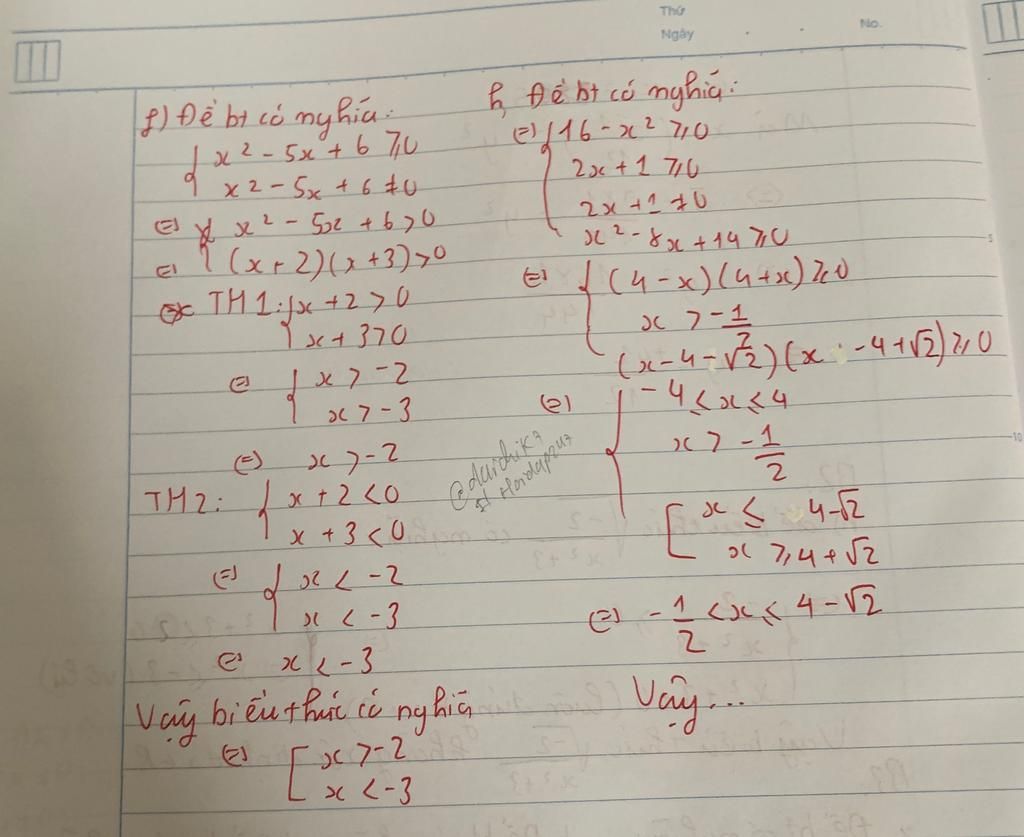 Thứ
Ngày
No.
f) Để bt có nghĩa:
{ x² - 5x + 6 ≥ 0
x² - 5x + 6 ≠ 0
(=) x² - 5x + 6 > 0
(=) (x + 2)(x + 3) > 0
TH1: { x + 2 > 0
x + 3 > 0
(=) { x > -2
x > -3
(=) x > -2
TH2: { x + 2 < 0
x + 3 < 0
(=) { x < -2
x < -3
(=) x < -3
Vậy biểu thức có nghĩa
(=) [ x > -2
x < -3
h, Để bt có nghĩa:
(=) { 16 - x² ≥ 0
2x + 1 ≥ 0
2x + 1 ≠ 0
x² - 8x + 14 ≥ 0
(=) { (4 - x)(4 + x) ≥ 0
x > -1/2
(x - 4 - √2)(x - 4 + √2) ≥ 0
(=) { -4 ≤ x ≤ 4
x > -1/2
[ x ≤ 4 - √2
x ≥ 4 + √2
(=) -1/2 < x ≤ 4 - √2
Vậy...
5
10